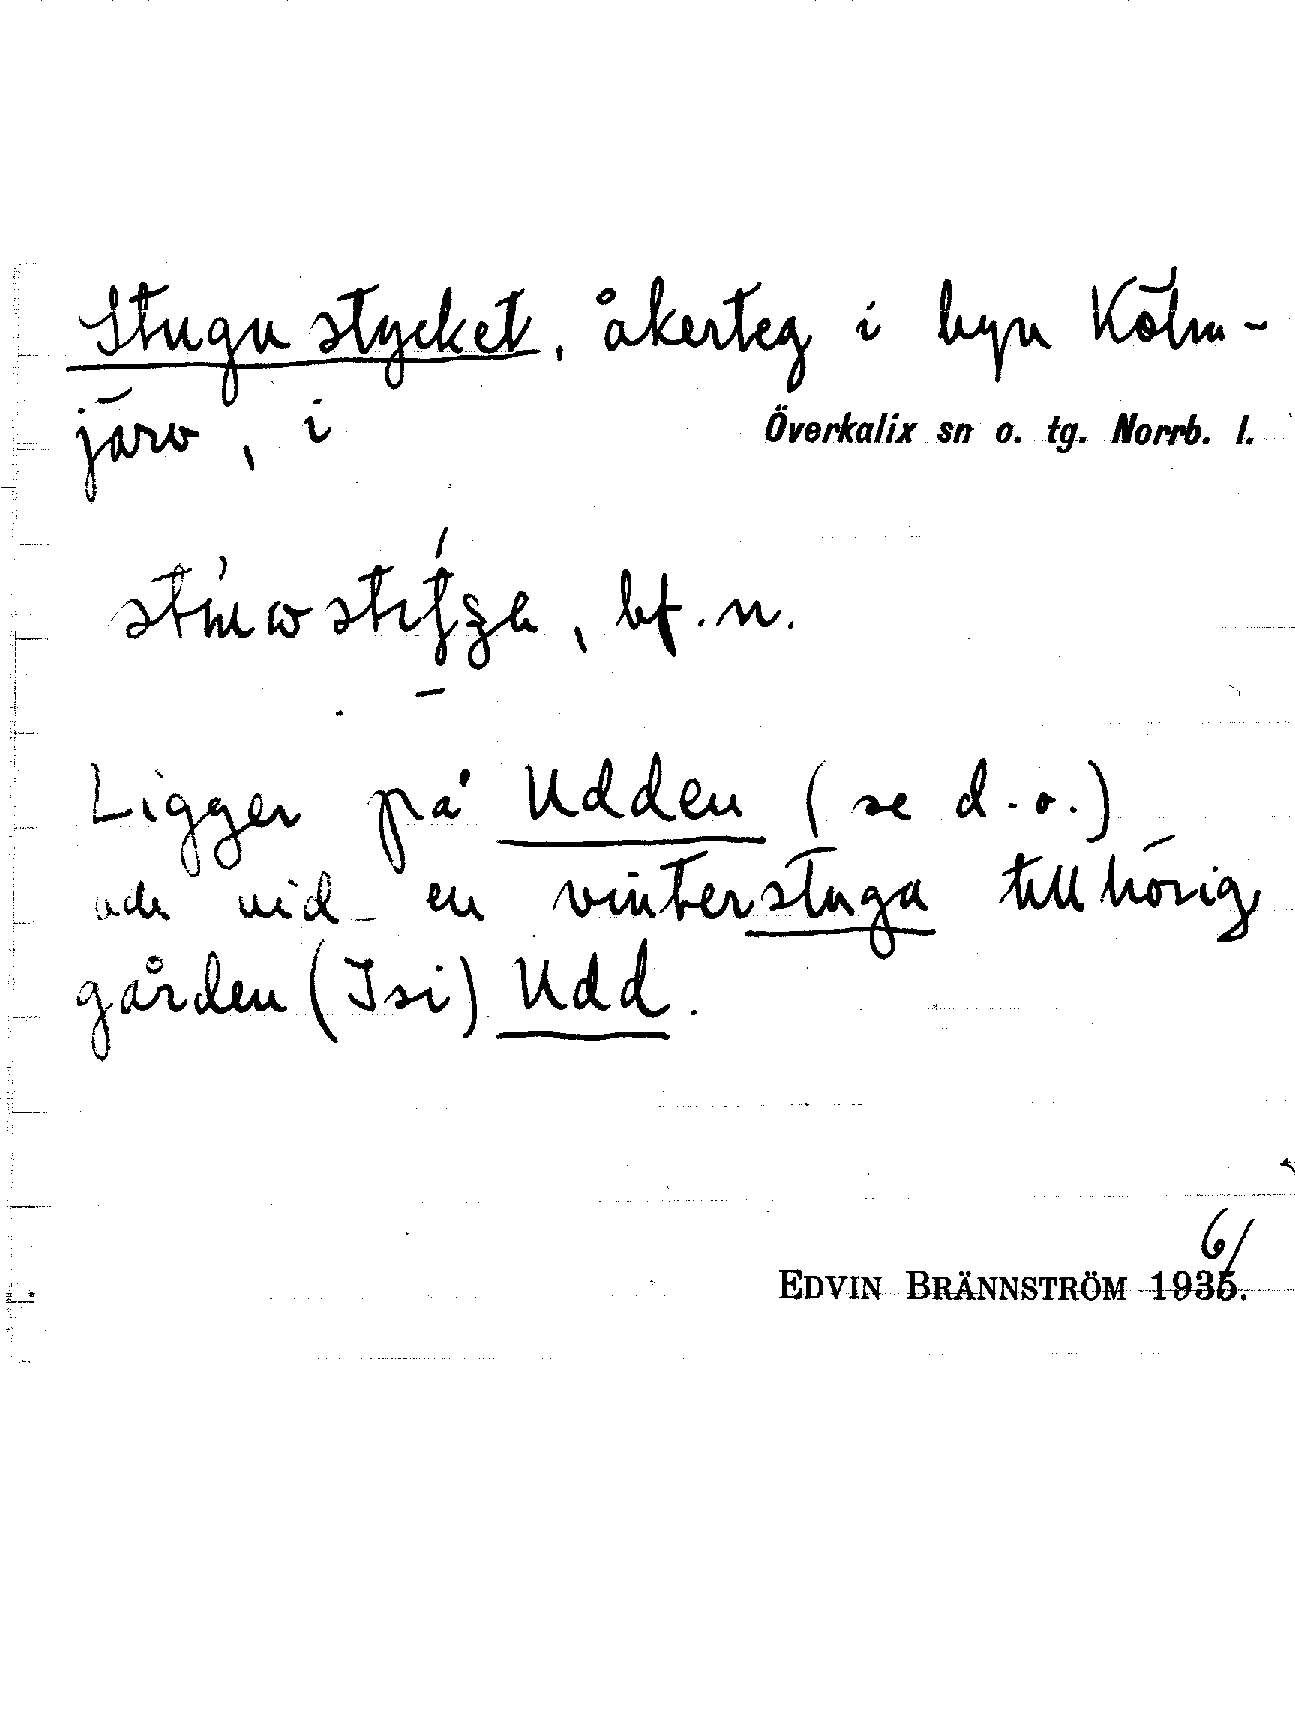 Stugustycket, åkerteg i byn Kölm-
järv, i Överkalix sn o. tg. Norrb. l.
bf. n.
Ligger på Udden (se d.o.)
och vid en vinterstuga tillhörig
gården (Isi) Udd.
6/
EDVIN BRÄNNSTRÖM 1935.